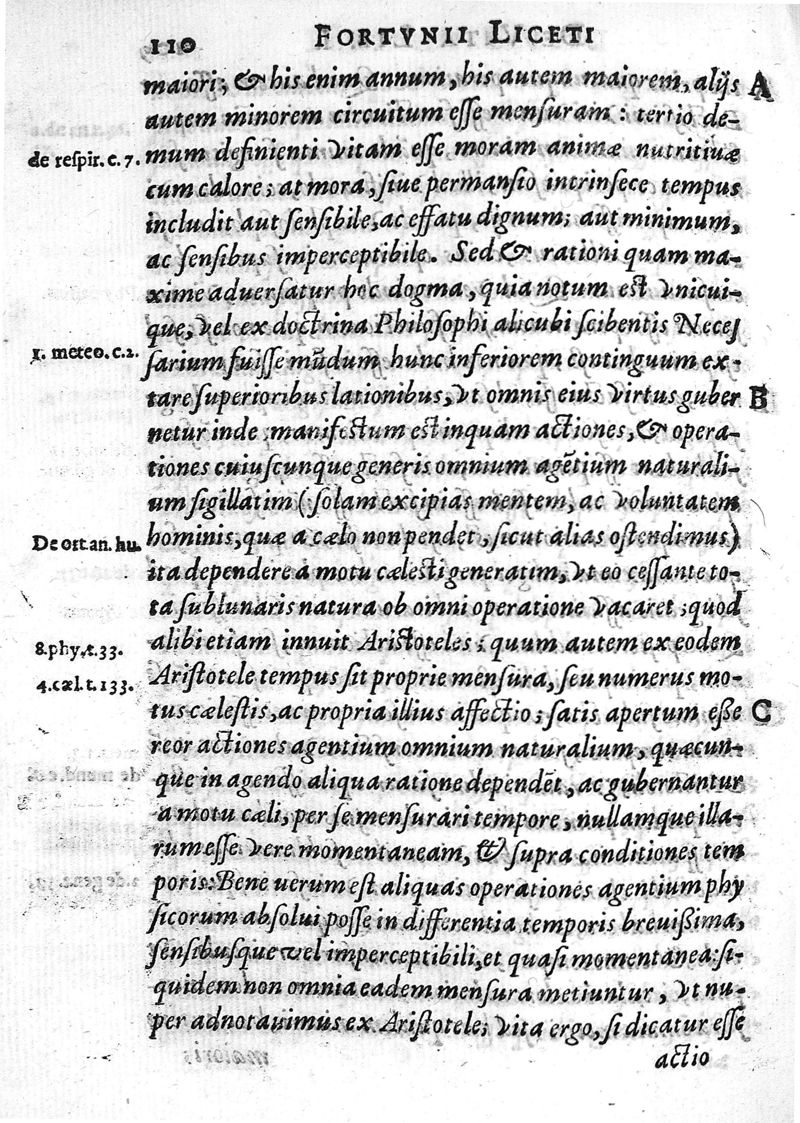 110 FORTVNII LICETI
maiori; & his enim annum, his autem maiorem, alijs A
autem minorem circuitum eſſe menſuram: tertio de-
de reſpir. c. 7. mum definienti vitam eſſe moram animæ nutritiuæ
cum calore; at mora, ſiue permanſio intrinſece tempus
includit aut ſenſibile, ac effatu dignum; aut minimum,
ac ſenſibus imperceptibile. Sed & rationi quam ma-
xime aduerſatur hoc dogma, quia notum est vnicui-
que, vel ex doctrina Philoſophi alicubi ſcibentis Neceſ
1. meteo. c. 2. ſarium fuiſſe mūdum hunc inferiorem continguum ex-
tare ſuperioribus lationibus, vt omnis eius virtus guber B
netur inde; manifestum est inquam actiones, & opera-
tiones cuiuſcunque generis omnium agētium naturali-
um ſigillatim (ſolam excipias mentem, ac voluntatem
De ort. an. hu. hominis, quæ a cælo non pendet, ſicut alias oſtendimus)
ita dependere a motu cælesti generatim, vt eo ceſſante to-
ta ſublunaris natura ob omni operatione vacaret; quod
8. phy. t. 33. alibi etiam innuit Ariſtoteles; quum autem ex eodem
4. cæl. t. 133. Ariſtotele tempus ſit proprie menſura, ſeu numerus mo-
tus cæleſtis, ac propria illius affectio; ſatis apertum eſſe C
reor actiones agentium omnium naturalium, quæcun-
que in agendo aliqua ratione dependēt, ac gubernantur
a motu cæli, per ſe menſurari tempore, nullamque illa-
rum eſſe vere momentaneam, & ſupra conditiones tem
poris: Bene uerum eſt aliquas operationes agentium phy
ſicorum abſolui poſſe in differentia temporis breuißima,
ſenſibuſque vel imperceptibili, et quaſi momentanea: ſi-
quidem non omnia eadem menſura metiuntur, vt nu-
per adnotauimus ex Ariſtotele; vita ergo, ſi dicatur eſſe
actio